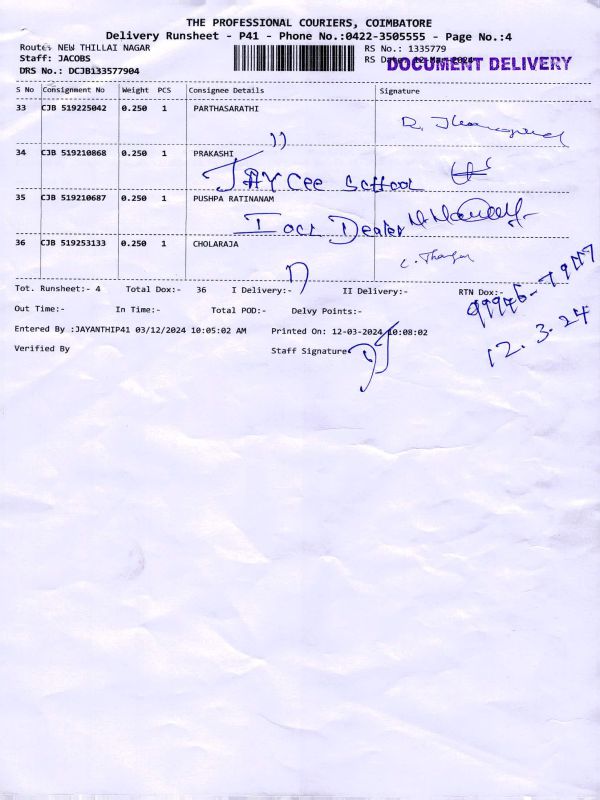 THE PROFESSIONAL COURIERS, COIMBATORE
Delivery Runsheet - P41 - Phone No.:0422-3505555 - Page No.:4
Route: NEW THILLAI NAGAR
RS No.: 1335779
Staff: JACOBS
RS Date: 12-Mar-2024
DOCUMENT DELIVERY
DRS No.: DCJB133577904
S No Consignment No Weight PCS Consignee Details Signature
33 CJB 519225042 0.250 1 PARTHASARATHI
34 CJB 519210868 0.250 1 PRAKASHI
JAY Cee School
35 CJB 519210687 0.250 1 PUSHPA RATINANAM
Dealer
36 CJB 519253133 0.250 1 CHOLARAJA
Tot. Runsheet:- 4 Total Dox:- 36 I Delivery:- II Delivery:- RTN Dox:-
Out Time:- In Time:- Total POD:- Delvy Points:-
Entered By :JAYANTHIP41 03/12/2024 10:05:02 AM Printed On: 12-03-2024 10:08:02
12.3.24
Verified By Staff Signature